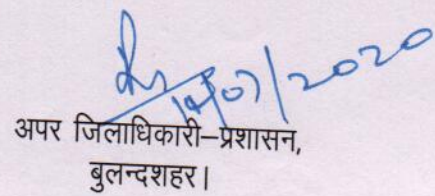 14/07/2020
अपर जिलाधिकारी–प्रशासन,
बुलन्दशहर।